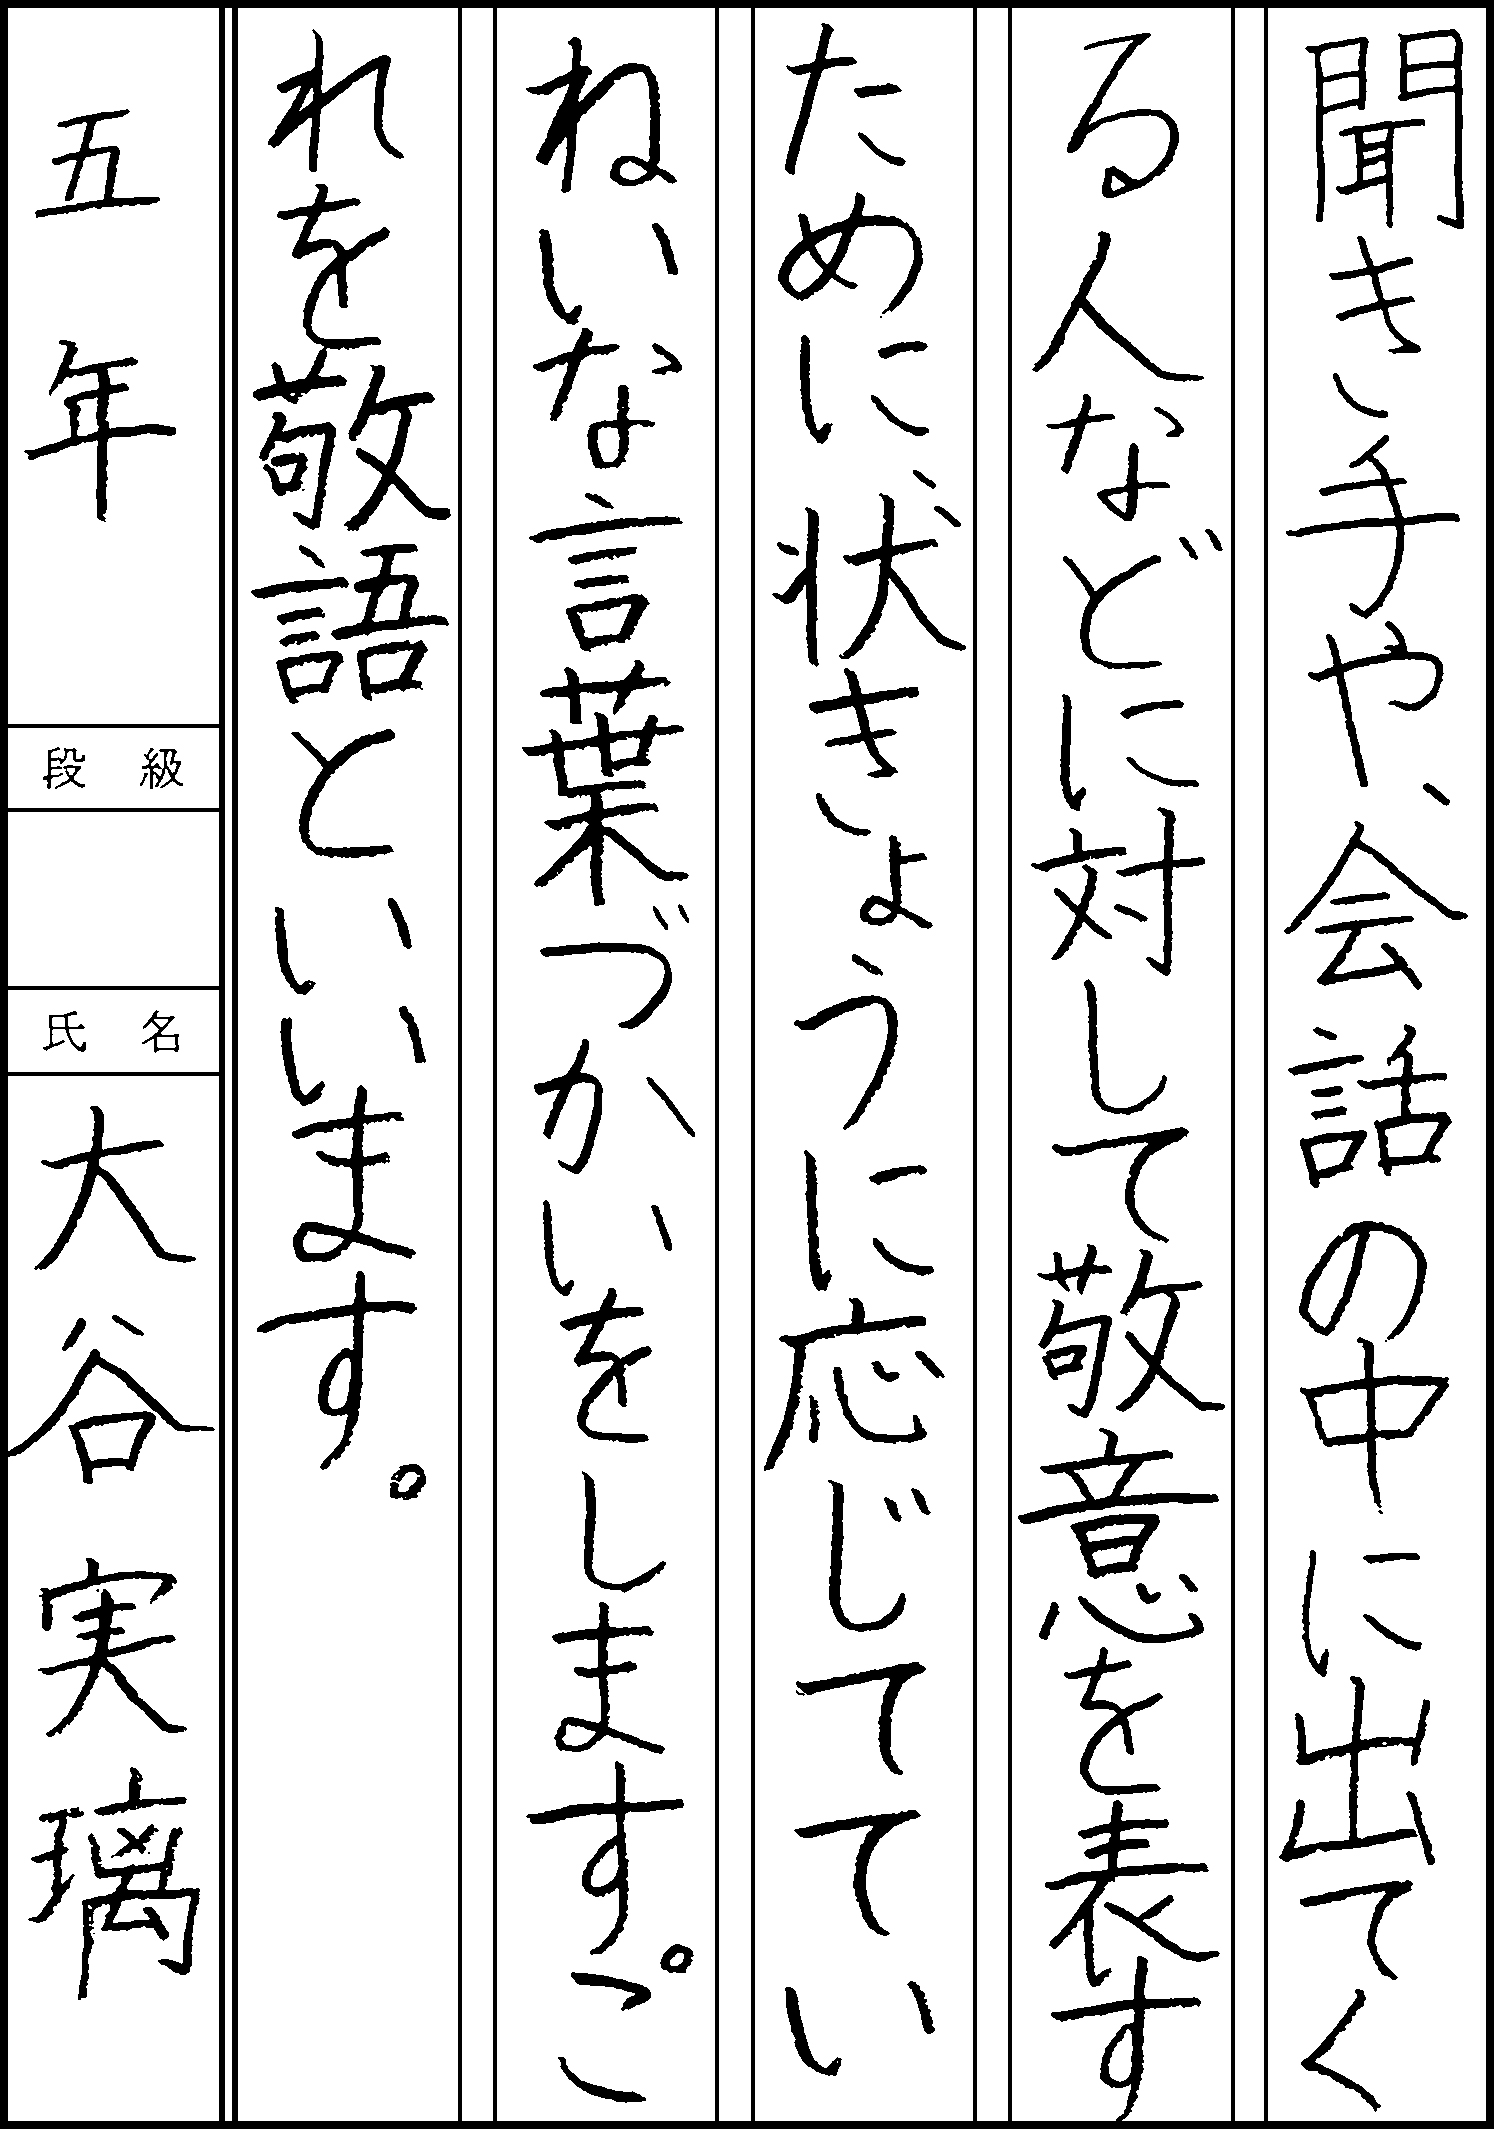 聞き手や、会話の中に出てく
る人などに対して敬意を表す
ために、状きょうに応じててい
ねいな言葉づかいをします。こ
れを敬語といいます。
五年
段級
氏名
大谷実璃